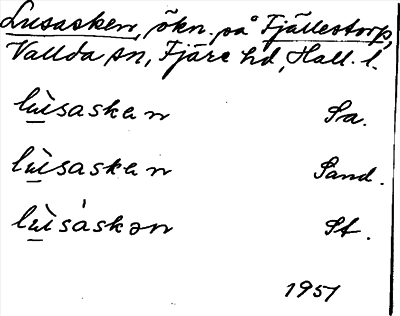 Lusasken, ökn. på Fjällestorp,
Vallda sn, Fjäre hd, Hall. l.
lùsasken Sa.
lùsasken Sand.
lùsáskən St.
1951